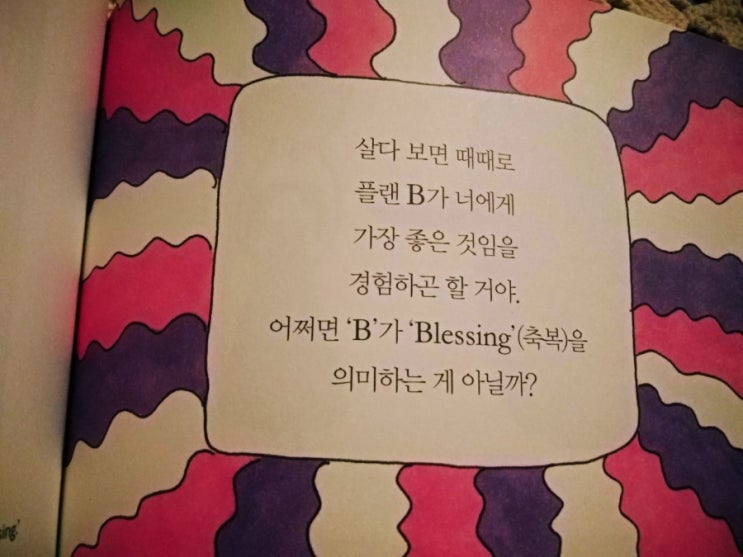 살다 보면 때때로
플랜 B가 너에게
가장 좋은 것임을
경험하곤 할 거야.
어쩌면 ‘B’가 ‘Blessing’(축복)을
의미하는 게 아닐까?